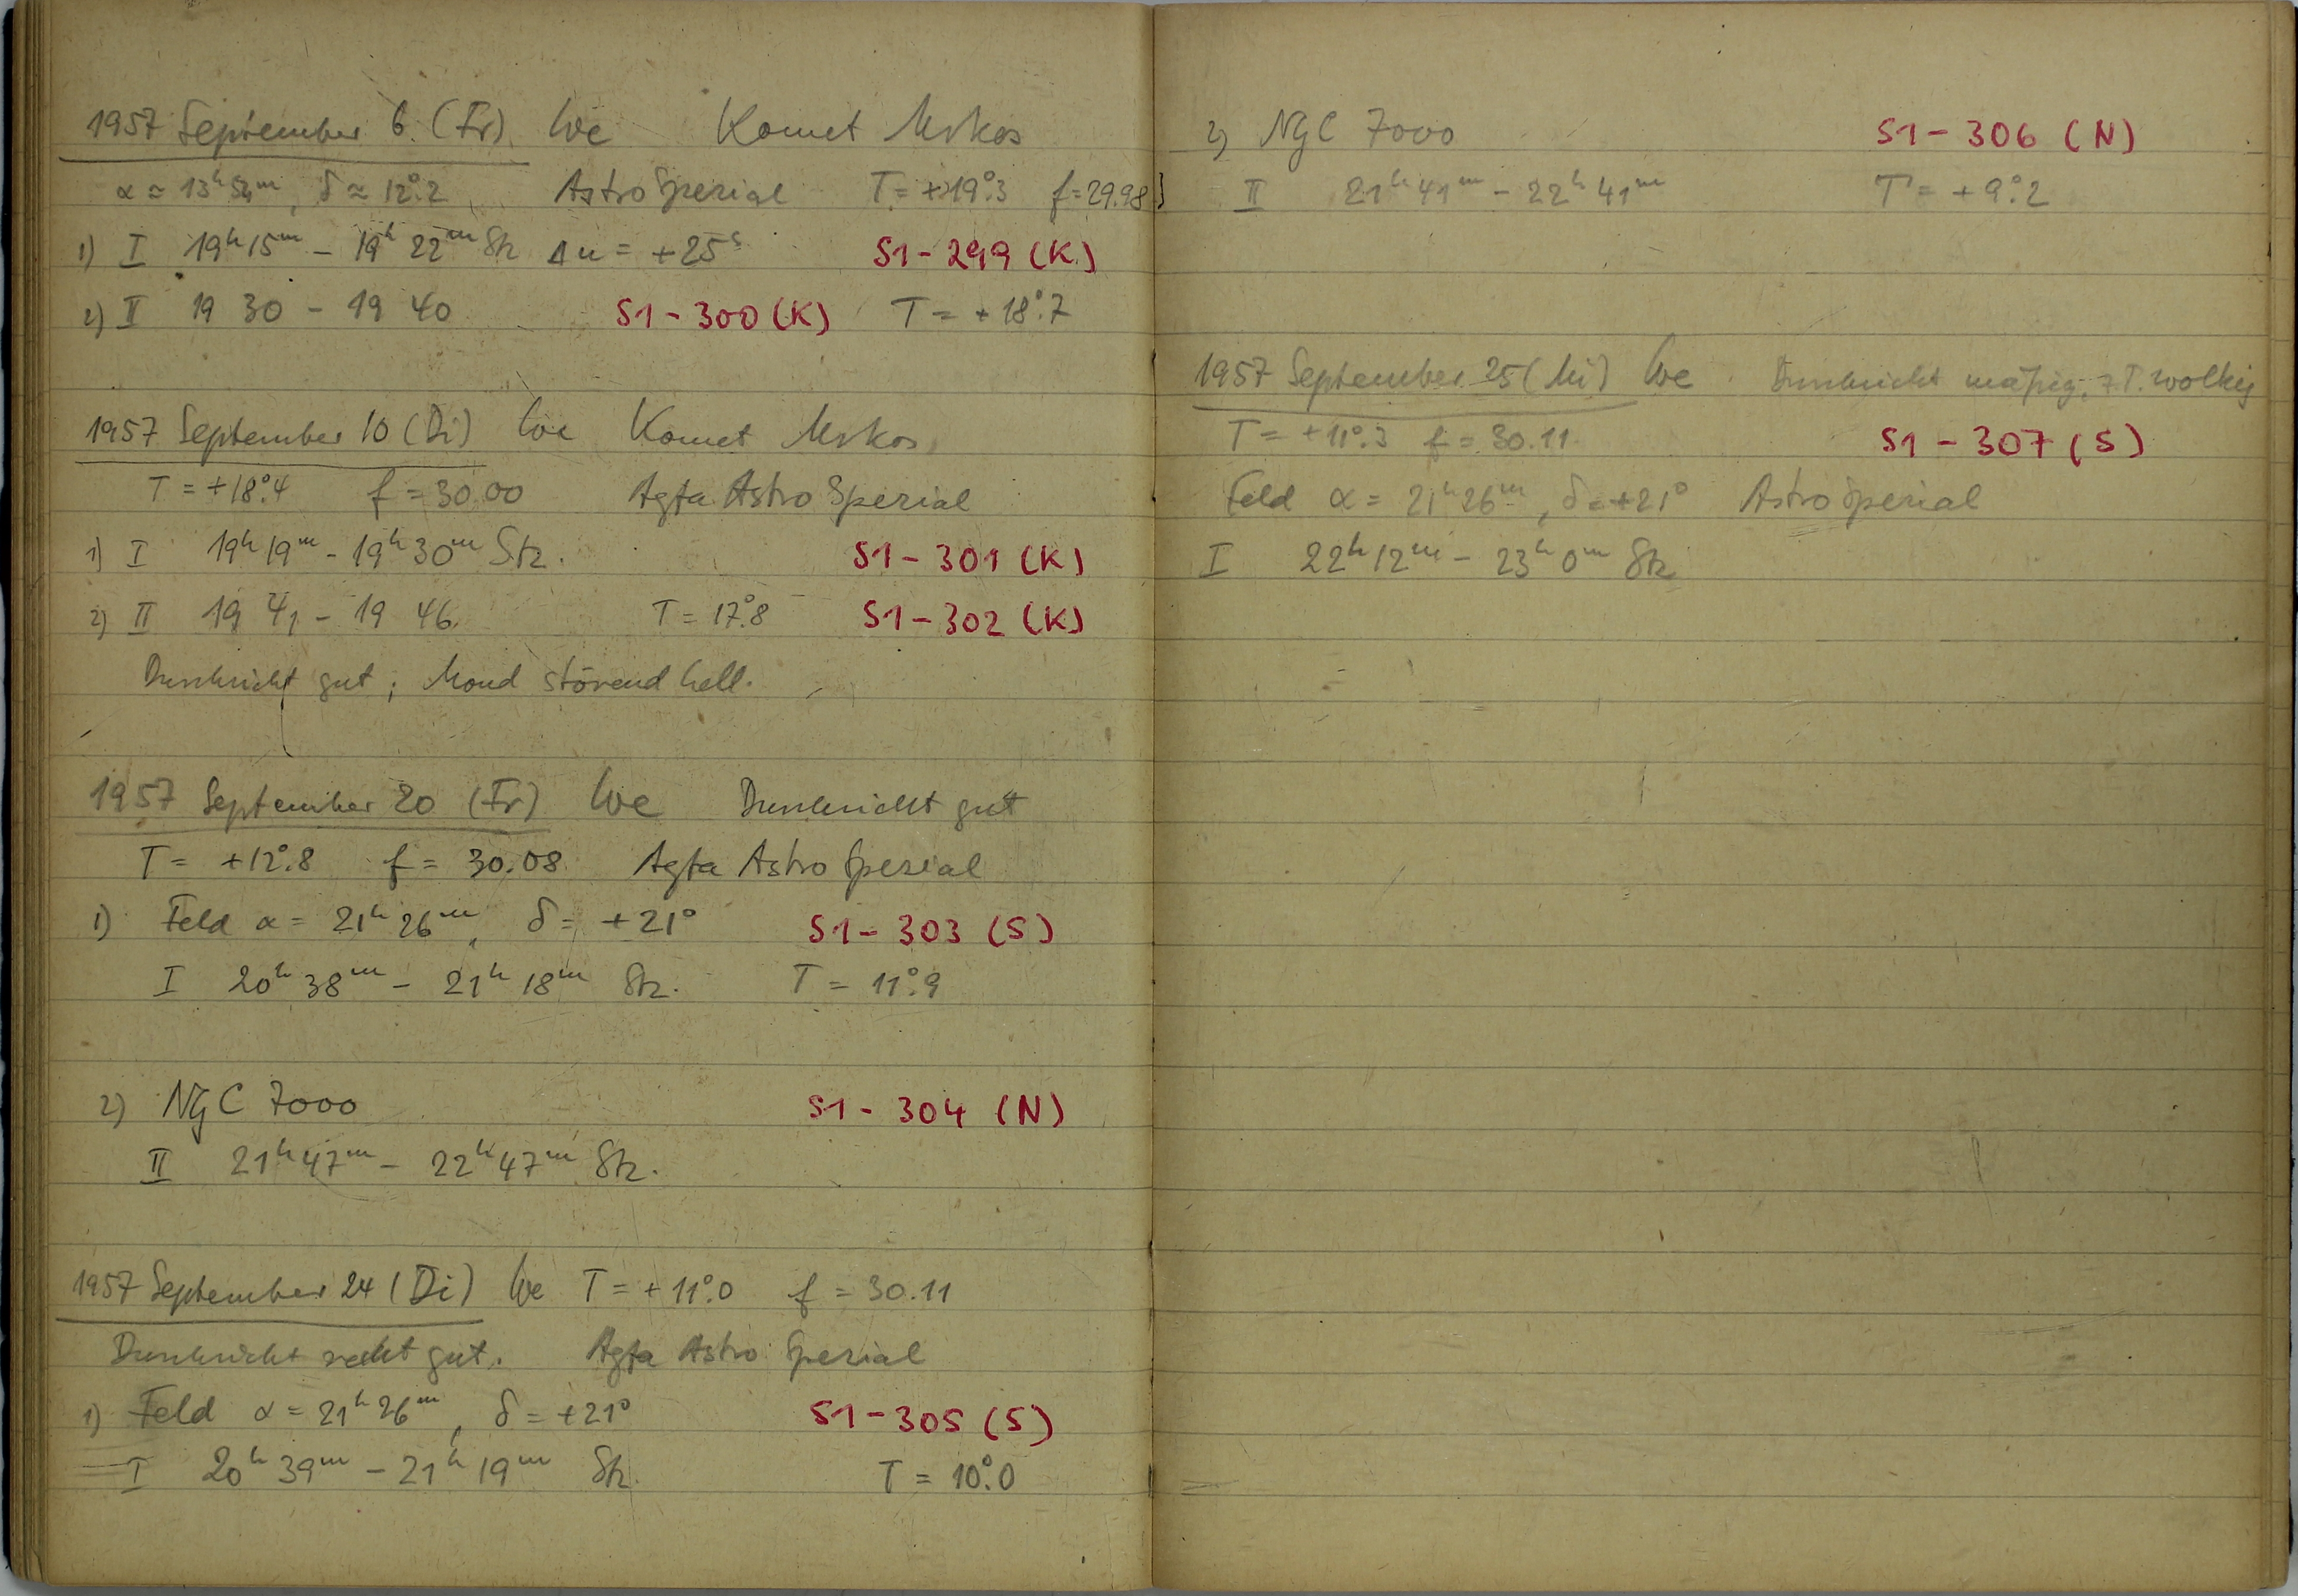 1957 September 6 (Fr) We Komet Mrkos
α ≈ 13ʰ 54ᵐ, δ ≈ 12°.2 Astro Spezial T = +19°.3 f = 29.98
1) I 19ʰ 15ᵐ – 19ʰ 22ᵐ Stz Δu = +25ˢ S1-299 (K)
2) II 19 30 – 19 40 S1-300 (K) T = +18°.7
1957 September 10 (Di) We Komet Mrkos
T = +18°.4 f = 30.00 Agfa Astro Spezial
1) I 19ʰ 19ᵐ – 19ʰ 30ᵐ Stz. S1-301 (K)
2) II 19 41 – 19 46. T = 17°.8 S1-302 (K)
Durchsicht gut; Mond störend hell.
1957 September 20 (Fr) We Durchsicht gut
T = +12°.8 f = 30.08 Agfa Astro Spezial
1) Feld α = 21ʰ 26ᵐ, δ = +21° S1-303 (S)
I 20ʰ 38ᵐ – 21ʰ 18ᵐ Stz. T = 11°.9
2) NGC 7000 S1-304 (N)
II 21ʰ 47ᵐ – 22ʰ 47ᵐ Stz.
1957 September 24 (Di) We T = +11°.0 f = 30.11
Durchsicht recht gut. Agfa Astro Spezial
1) Feld α = 21ʰ 26ᵐ, δ = +21° S1-305 (S)
I 20ʰ 39ᵐ – 21ʰ 19ᵐ Stz. T = 10°.0
2) NGC 7000 S1-306 (N)
II 21ʰ 41ᵐ – 22ʰ 41ᵐ T = +9°.2
1957 September 25 (Mi) We Durchsicht mäßig, z.T. wolkig
T = +11°.3 f = 30.11 S1-307 (S)
Feld α = 21ʰ 26ᵐ, δ = +21° Astro Spezial
I 22ʰ 12ᵐ – 23ʰ 0ᵐ Stz